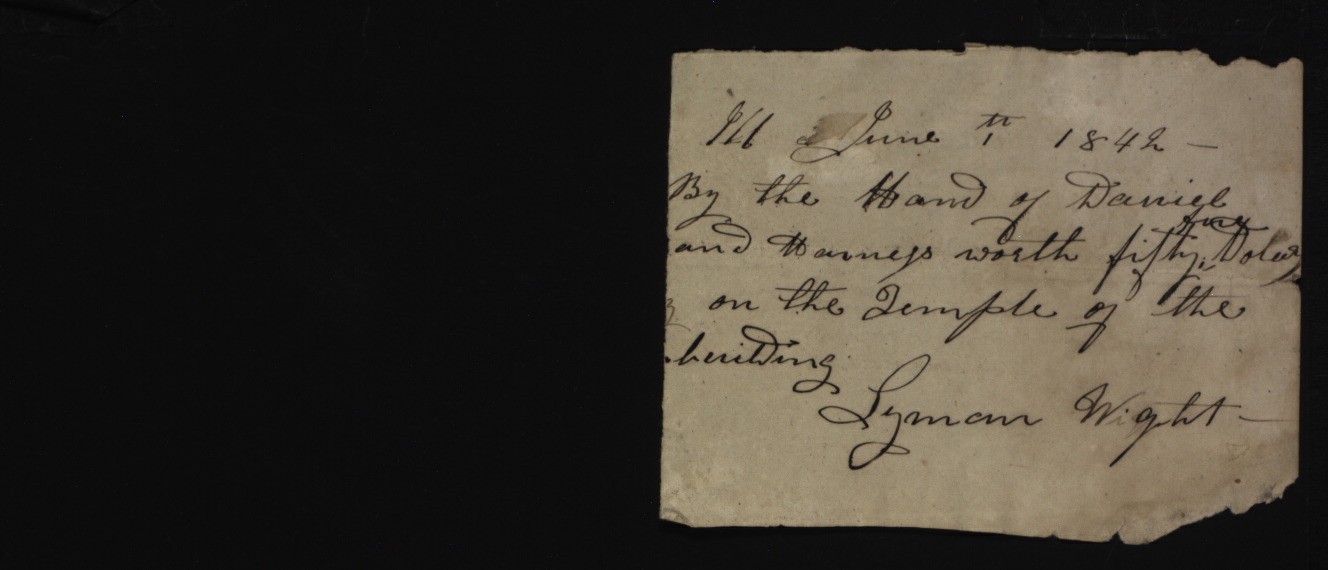 Ill June 1th 1842 —
By the Hand of Daniel
and Harness worth fifty five Dolers
on the Temple of the
building
Lyman Wight —